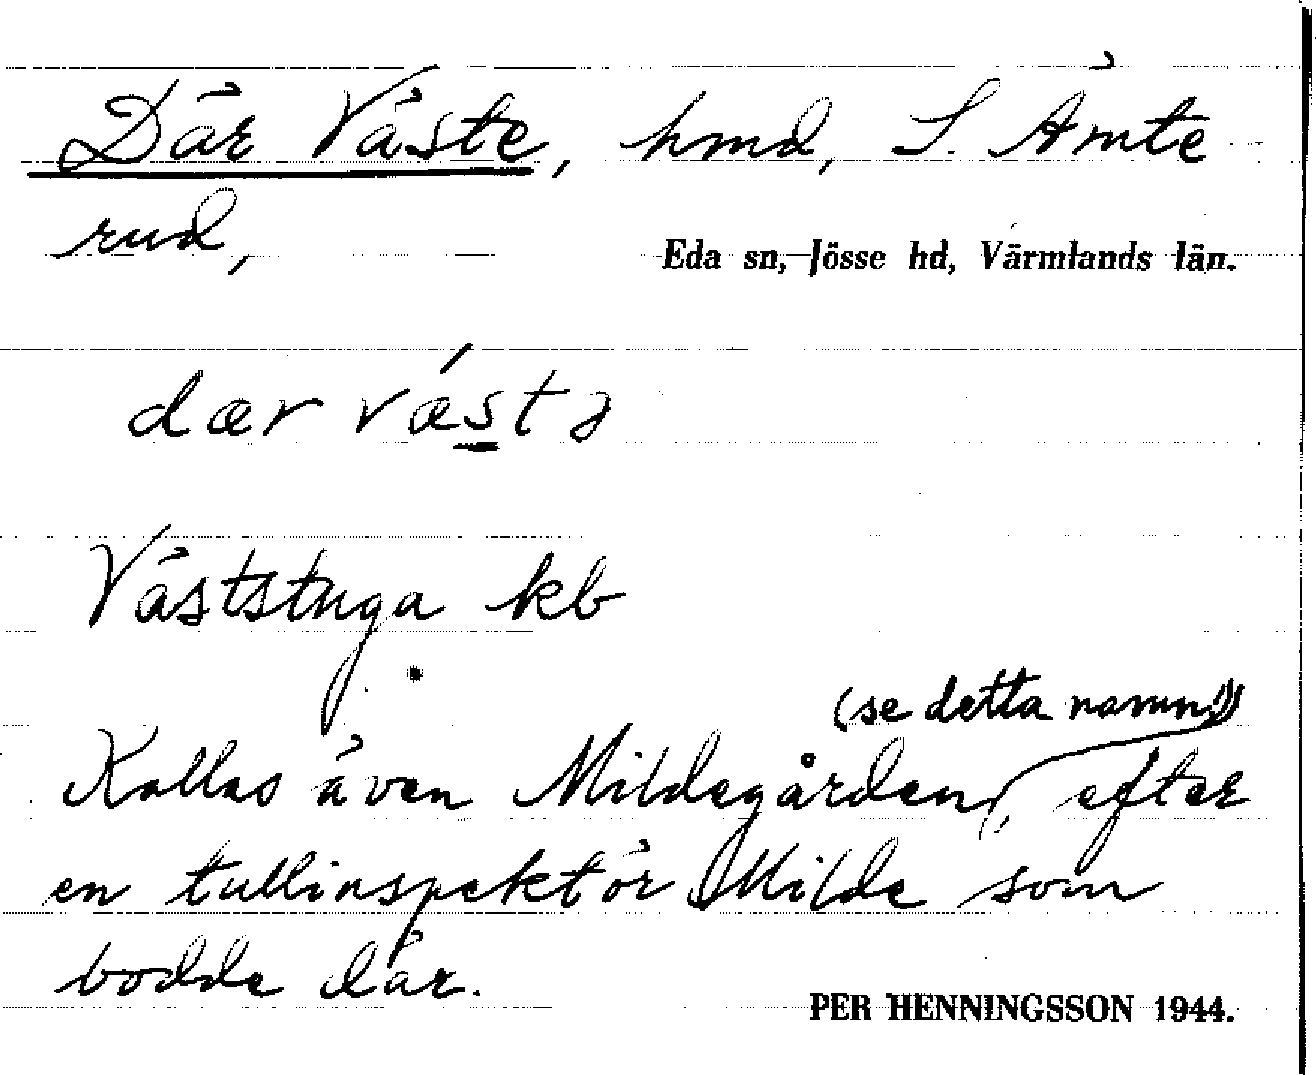 Där Väste, hmd, S. Ämte
rud,
Eda sn, Jösse hd, Värmlands län.
dær væ´stə
Väststuga kb
(se detta namn!)
Kallas även Mildegården, efter
en tullinspektör Milde som
bodde där.
PER HENNINGSSON 1944.